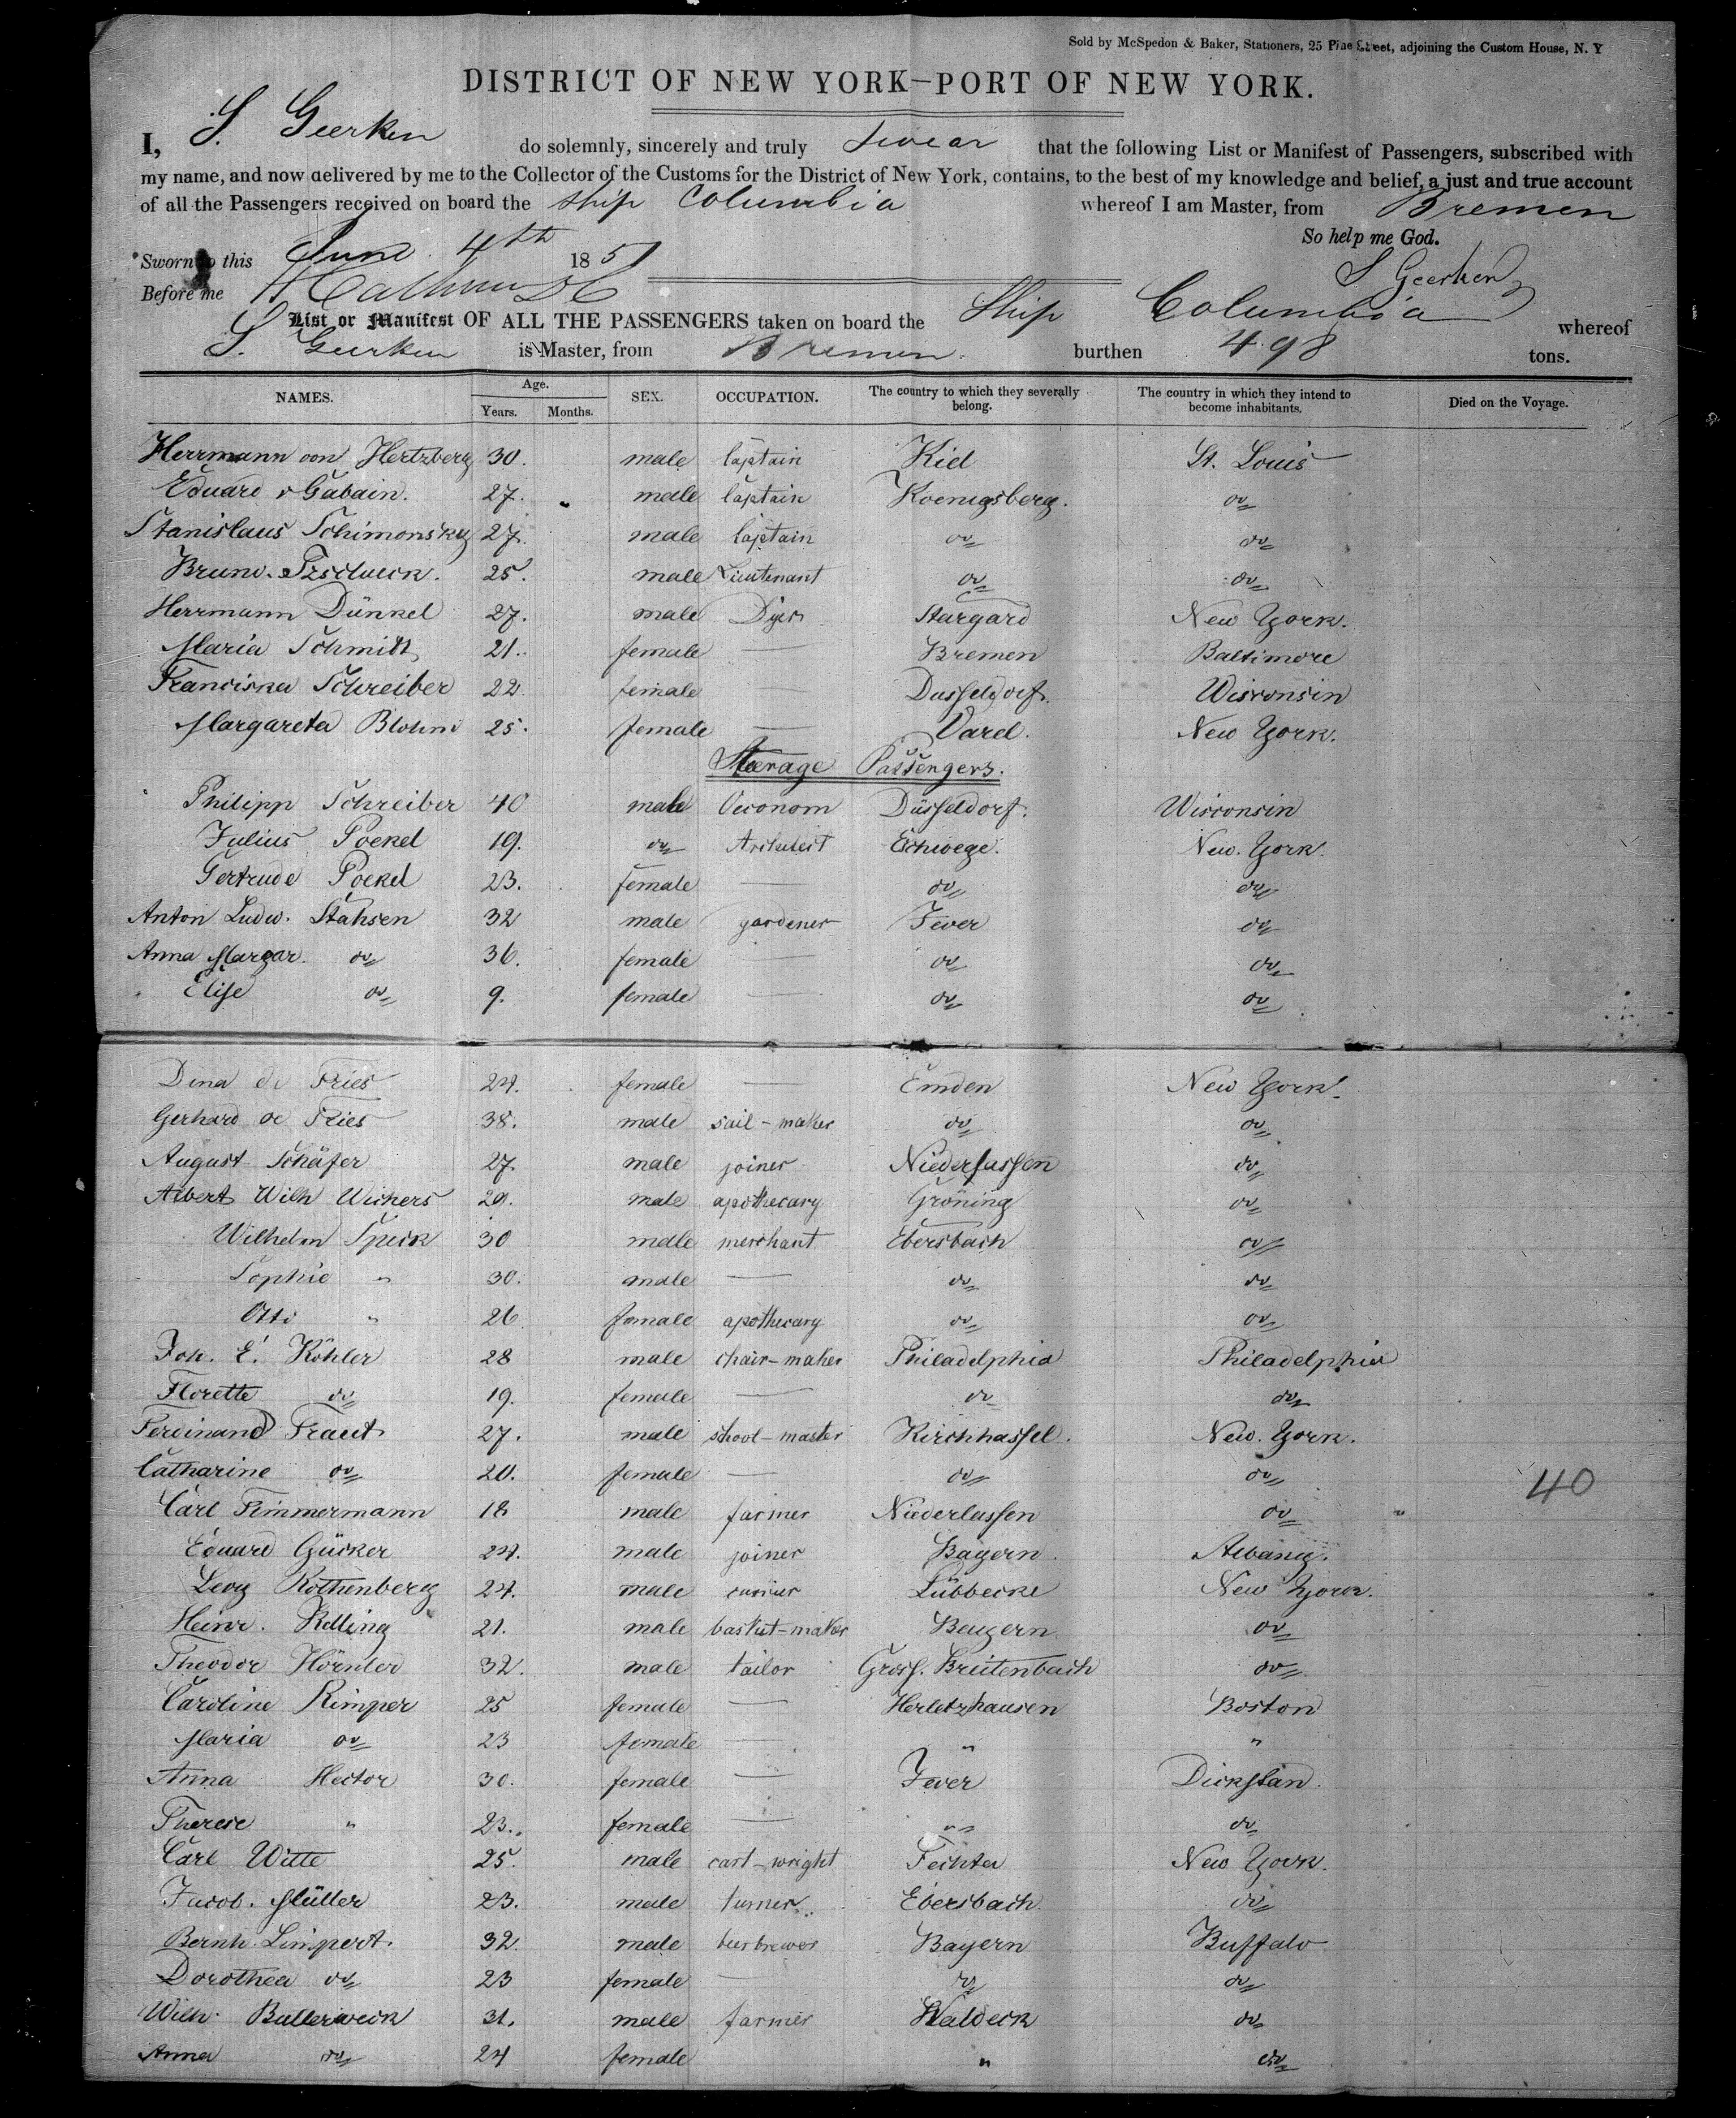 Sold by McSpedon & Baker, Stationers, 25 Pine Street, adjoining the Custom House, N. Y
DISTRICT OF NEW YORK—PORT OF NEW YORK.
I, S. Geerken do solemnly, sincerely and truly swear that the following List or Manifest of Passengers, subscribed with
my name, and now delivered by me to the Collector of the Customs for the District of New York, contains, to the best of my knowledge and belief, a just and true account
of all the Passengers received on board the Ship Columbia whereof I am Master, from Bremen
So help me God.
Sworn to this June 4th 1851 S Geerken
Before me
List or Manifest OF ALL THE PASSENGERS taken on board the Ship Columbia whereof
S. Geerken is Master, from Bremen. burthen 498 tons.
NAMES. Age. Years. Months. SEX. OCCUPATION. The country to which they severally belong. The country in which they intend to become inhabitants. Died on the Voyage.
Herrmann von Hertzberg 30. male Captain Kiel St. Louis
Eduard v Gabain. 27. male Captain Koenigsberg. do
Stanislaus Schimonsky 27. male Captain do do
Bruno 25. male Lieutenant do do
Herrmann Dünkel 27. male Dyer Stargard New York.
Maria Schmidt 21. female — Bremen Baltimore
Franciska Schreiber 22. female — Dusseldorf. Wisconsin
Margareta Blohm 25. female — Varel. New York.
Steerage Passengers.
Philipp Schreiber 40 male Oeconom Düsseldorf. Wisconsin
Julius Poekel 19. do Architect Eschwege. New York.
Gertrude Poekel 23. female — do do
Anton Ludw. Stahsen 32 male gardener Jever do
Anna Margar. do 36. female — do do
Elise do 9. female — do do
Dina de Fries 24. female — Emden New York.
Gerhard de Fries 38. male sail-maker do do
August Schäfer 27. male joiner Niederlassen do
Albert Wilh Wichers 29. male apothecary Gröning do
Wilhelm Speck 30 male merchant Ebersbach do
Sophie " 30. male — do do
Otto " 26 female apothecary do do
Joh. E. Köhler 28 male chair-maker Philadelphia Philadelphia
Florette do 19. female — do do
Ferdinand Traut 27. male school-master Kirchhassel. New York.
Catharine do 20. female — do do
40
Carl Timmermann 18 male farmer Niederlassen do
Eduard Gücker 24. male joiner Bayern. Albany.
Levy Rothenberg 24. male currier Lübbecke New York.
Heinr. Relling 21. male basket-maker Bayern do
Theodor Hörnler 32. male tailor Gross. Breitenbach do
Caroline Kimper 25 female — Herletzhausen Boston
Maria do 23 female — " "
Anna Hector 30. female — Jever Dickslan.
Therese " 23. female — " do
Carl Witte 25. male cart-wright Fechta New York.
Jacob. Müller 23. male turner Ebersbach do
Bernh. Limpert. 32. male beerbrewer Bayern Buffalo
Dorothea do 23 female — do do
Wilh. Butterweck 31. male farmer Waldeck do
Anna do 24 female " do